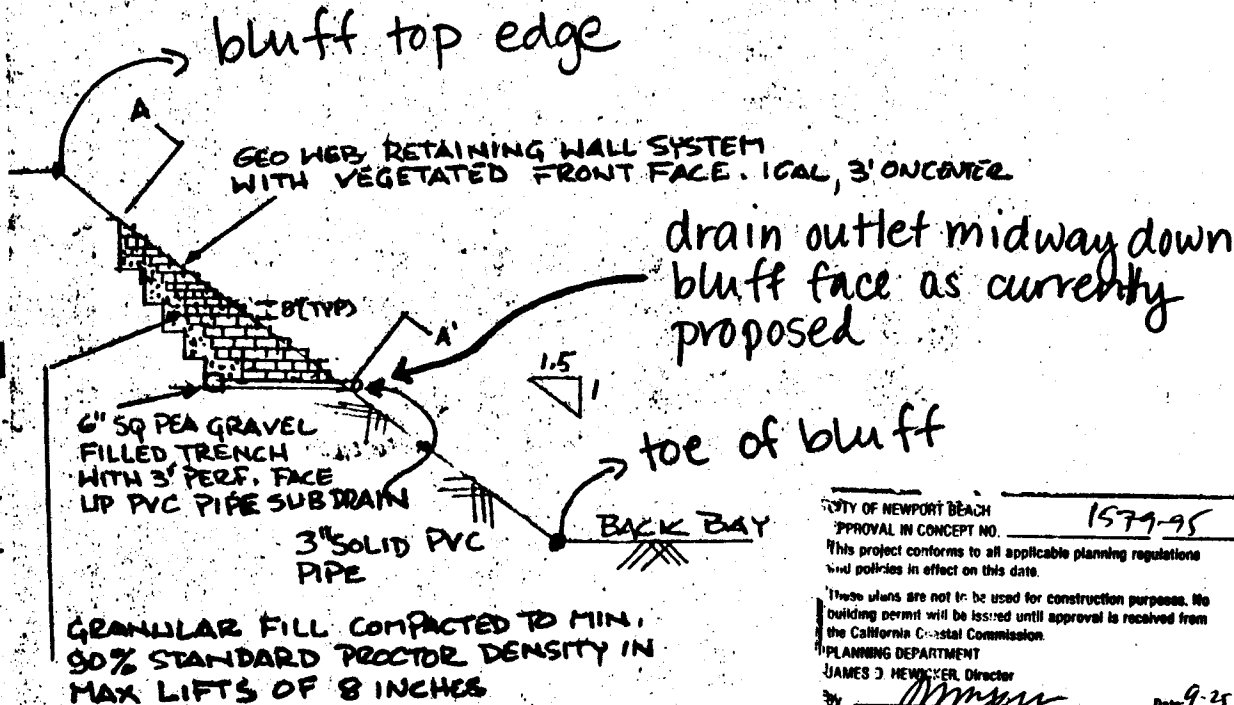 bluff top edge
A
GEO WEB RETAINING WALL SYSTEM
WITH VEGETATED FRONT FACE. 1GAL, 3' ONCENTER
drain outlet midway down
bluff face as currently
proposed
8"(TYP)
A'
1.5
1
6" SQ PEA GRAVEL
FILLED TRENCH
WITH 3" PERF. FACE
UP PVC PIPE SUBDRAIN
toe of bluff
3" SOLID PVC
PIPE
BACK BAY
GRANULAR FILL COMPACTED TO MIN.
90% STANDARD PROCTOR DENSITY IN
MAX LIFTS OF 8 INCHES
CITY OF NEWPORT BEACH
APPROVAL IN CONCEPT NO. 1579-95
This project conforms to all applicable planning regulations
and policies in effect on this date.
These plans are not to be used for construction purposes. No
building permit will be issued until approval is received from
the California Coastal Commission.
PLANNING DEPARTMENT
JAMES D. HEWICKER, Director
By
Date 9-25